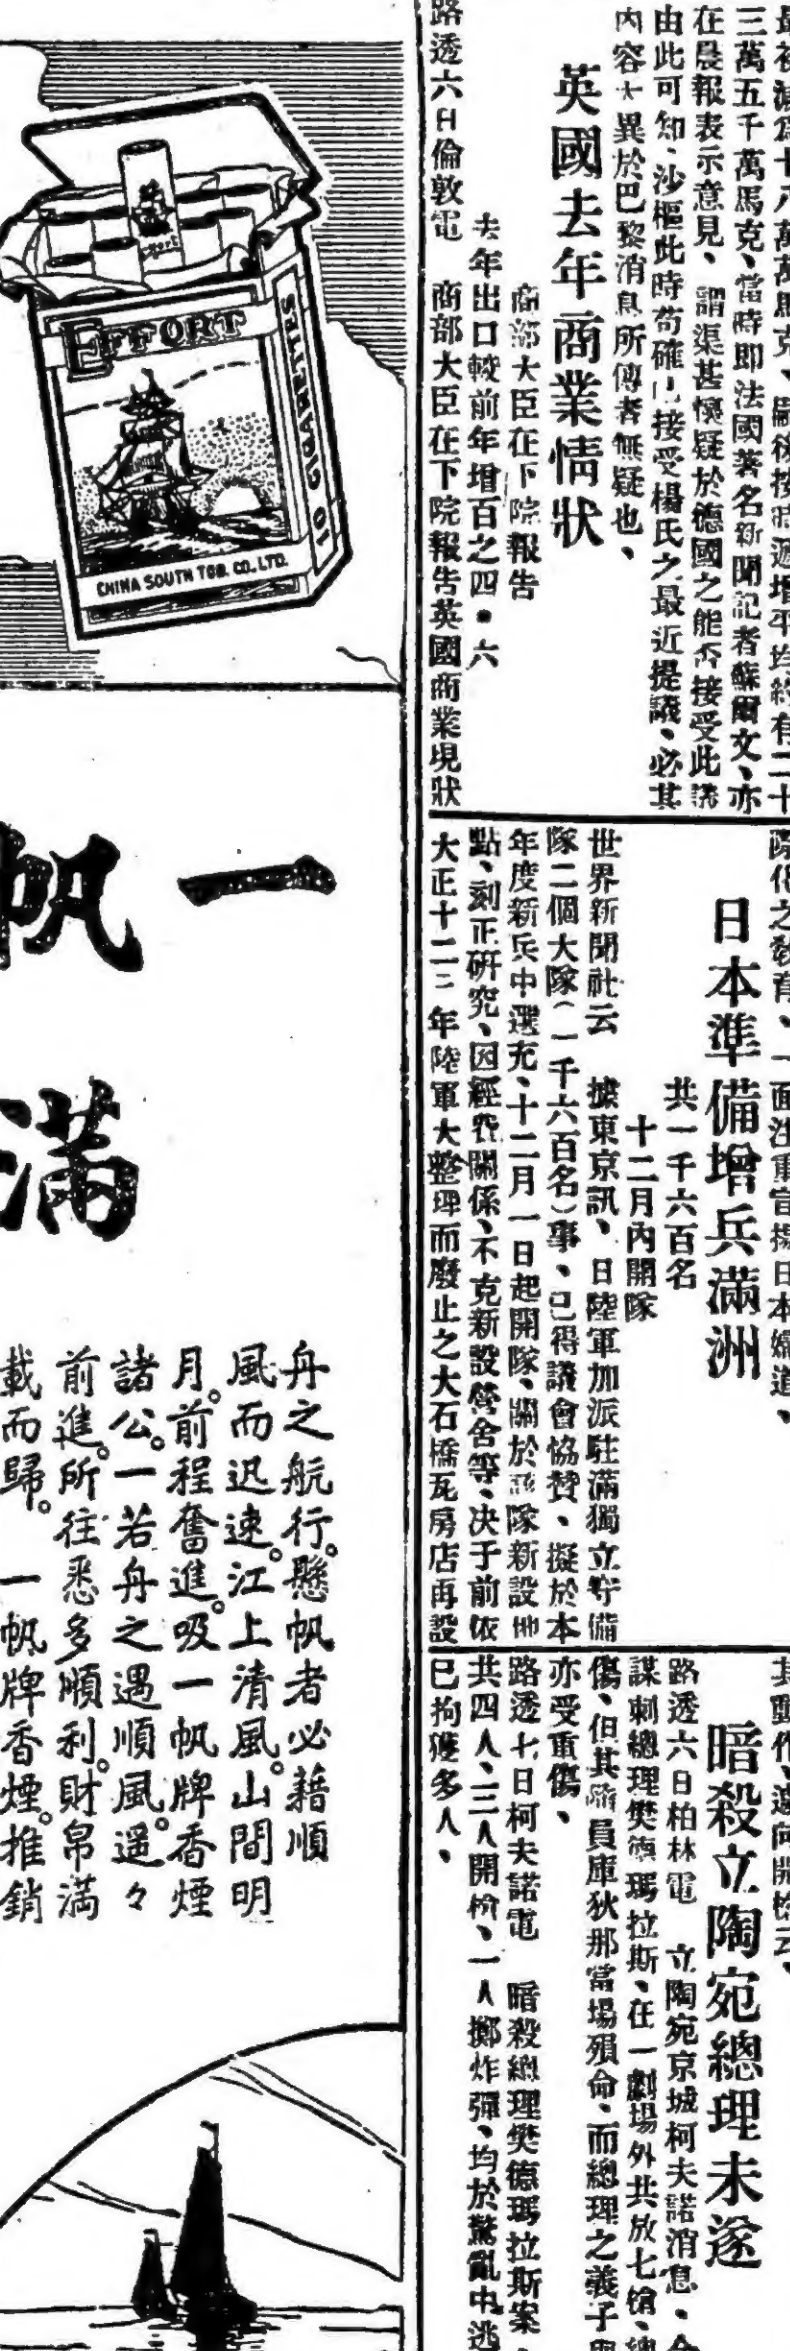 三萬五千萬馬克、當時即法國著名新聞記者蘇爾文、亦
在晨報表示意見、謂渠甚懷疑於德國之能否接受此議
由此可知、沙樞此時苟確已接受楊氏之最近提議、必其
內容大異於巴黎消息所傳者無疑也、
英國去年商業情狀
商部大臣在下院報告
去年出口較前年增百之四・六
路透六日倫敦電　商部大臣在下院報告英國商業現狀
日本準備增兵滿洲
共一千六百名
十二月內開隊
世界新聞社云　據東京訊、日陸軍加派駐滿獨立守備
隊二個大隊（一千六百名）事、已得議會協贊、擬於本
年度新兵中選充、十二月一日起開隊、關於該隊新設地
點、刻正研究、因經費關係、不克新設營舍等、决于前依
大正十二年陸軍大整理而廢止之大石橋瓦房店再設
暗殺立陶宛總理未遂
路透六日柏林電　立陶宛京城柯夫諾消息、
謀刺總理樊德瑪拉斯、在一劇場外共放七槍、總
傷、但其隨員庫狄那當場殞命、而總理之義子
亦受重傷、
路透七日柯夫諾電　暗殺總理樊德瑪拉斯案、
共四人、三人開槍、一人擲炸彈、均於驚亂中逃
已拘獲多人、
EFFORT
10 CIGARETTES
CHINA SOUTH TOB. CO., LTD.
一帆
滿
舟之航行。懸帆者必藉順
風而迅速。江上清風。山間明
月。前程奮進。吸一帆牌香煙
諸公。一若舟之遇順風。遥々
前進。所往悉多順利。財帛滿
載而歸。一帆牌香煙。推銷